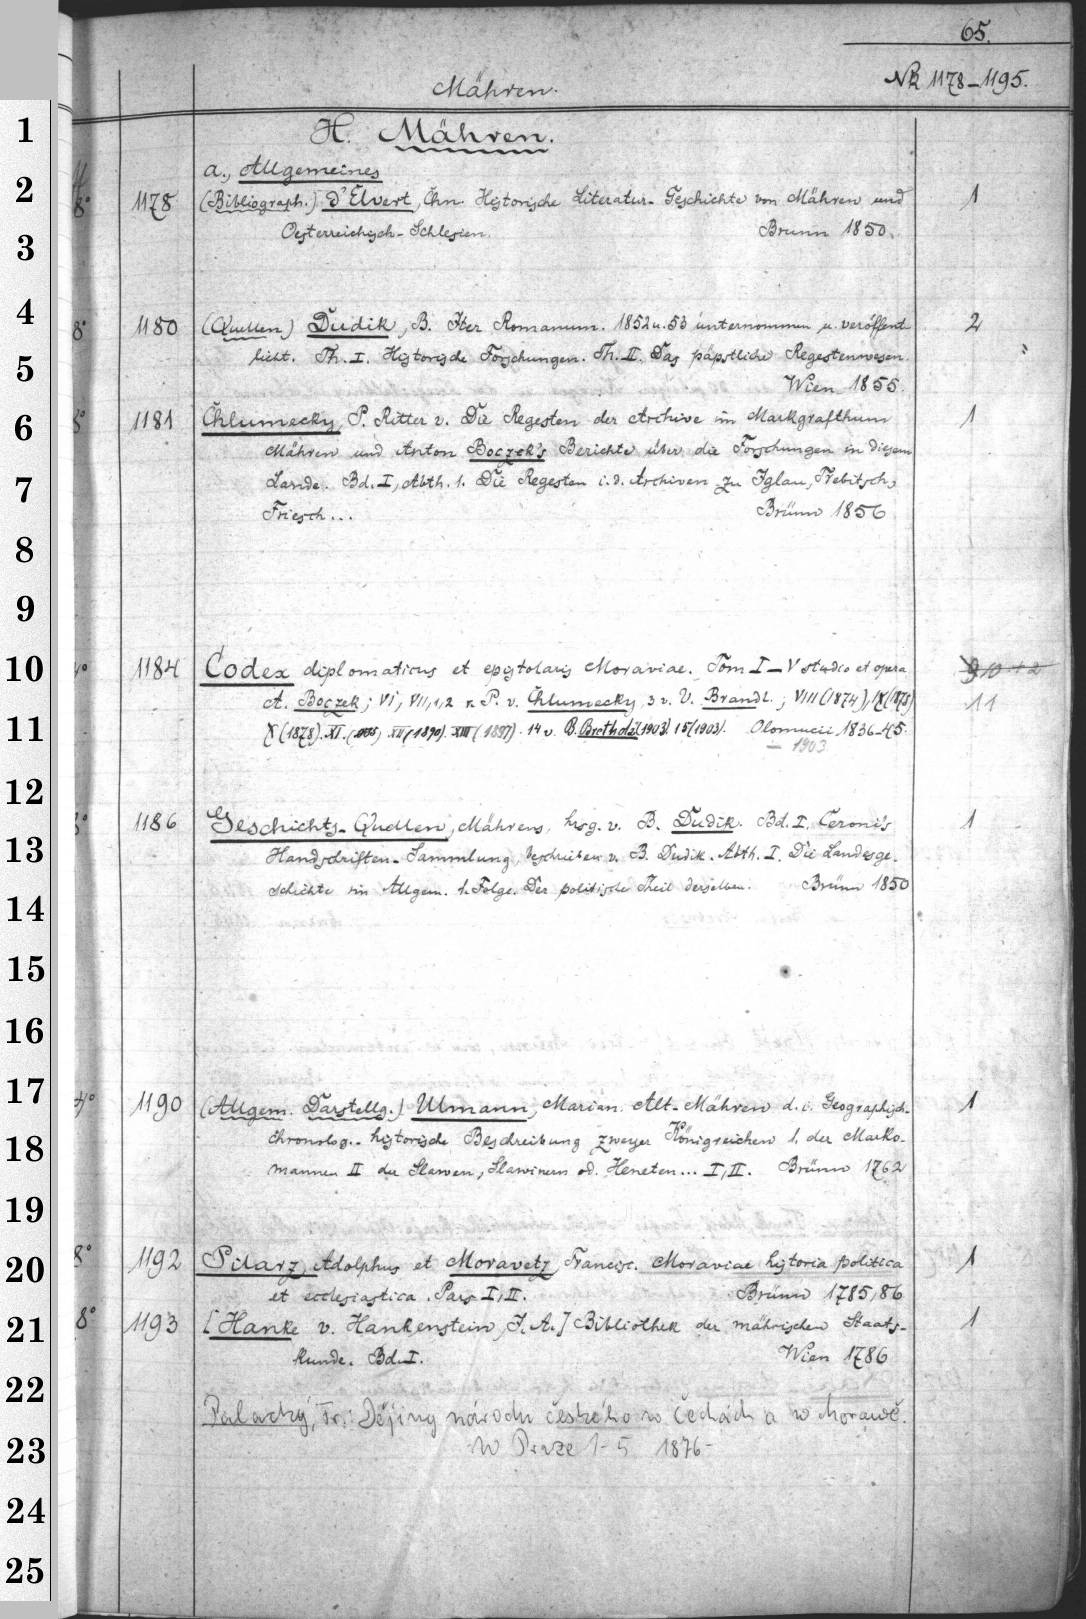 65.
Mähren. NR 1178-1195.
1
H. Mähren.
a., Allgemeines
2
8° 1178 (Bibliograph.) d'Elvert, Chn. Historische Literatur-Geschichte von Mähren und 1
3
Oesterreichisch-Schlesien. Brünn 1850.
4
8° 1180 (Quellen) Dudik, B. Iter Romanum. 1852 u. 53 unternommen u. veröffent- 2
5
licht. Th. I. Historische Forschungen. Th. II. Das päpstliche Regestenwesen.
Wien 1855.
6
8° 1181 Chlumecky, P. Ritter v. Die Regesten der Archive im Markgrafthum 1
Mähren und Anton Boczek's Berichte über die Forschungen in diesem
7
Lande. Bd. I, Abth. 1. Die Regesten i. d. Archiven zu Iglau, Trebitsch,
Triesch... Brünn 1856
8
9
10
4° 1184 Codex diplomaticus et epistolaris Moraviae. Tom I-V studio et opera 10+2
A. Boczek; VI, VII,1,2 v. P. v. Chlumecky, 3 v. V. Brandl.; VIII (1874), IX (1875) 11
11
X (1878). XI. XII (1890). XIII (1897). 14 v. B. Bretholz (1903) 15 (1903). Olomucii 1836-45.
- 1903
12
8° 1186 Geschichts-Quellen, Mährens, hrsg. v. B. Dudik. Bd. I. Ceroni's 1
13
Handschriften-Sammlung, beschrieben v. B. Dudik. Abth. I. Die Landesge-
schichte im Allgem. 1. Folge. Der politische Theil derselben. Brünn 1850
14
15
16
17
4° 1190 (Allgem. Darstellg.) Ulmann, Marian. Alt-Mähren d. i. Geographisch- 1
18
chronolog.-historische Beschreibung zweyer Königreichen 1. der Marko-
mannen II der Slawen, Slawinern od. Heneten... I, II. Brünn 1762
19
20
8° 1192 Pilarz, Adolphus et Moravetz, Francisc. Moraviae historia politica 1
et ecclesiastica. Pars I, II. Brünn 1785, 86
21
8° 1193 [Hanke v. Hankenstein, J. A.] Bibliothek der mährischen Staats- 1
kunde. Bd. I. Wien 1786
22
Palacký, Fr.: Dějiny národu českého w Čechách a w Morawě.
23
W Praze 1-5 1876-
24
25